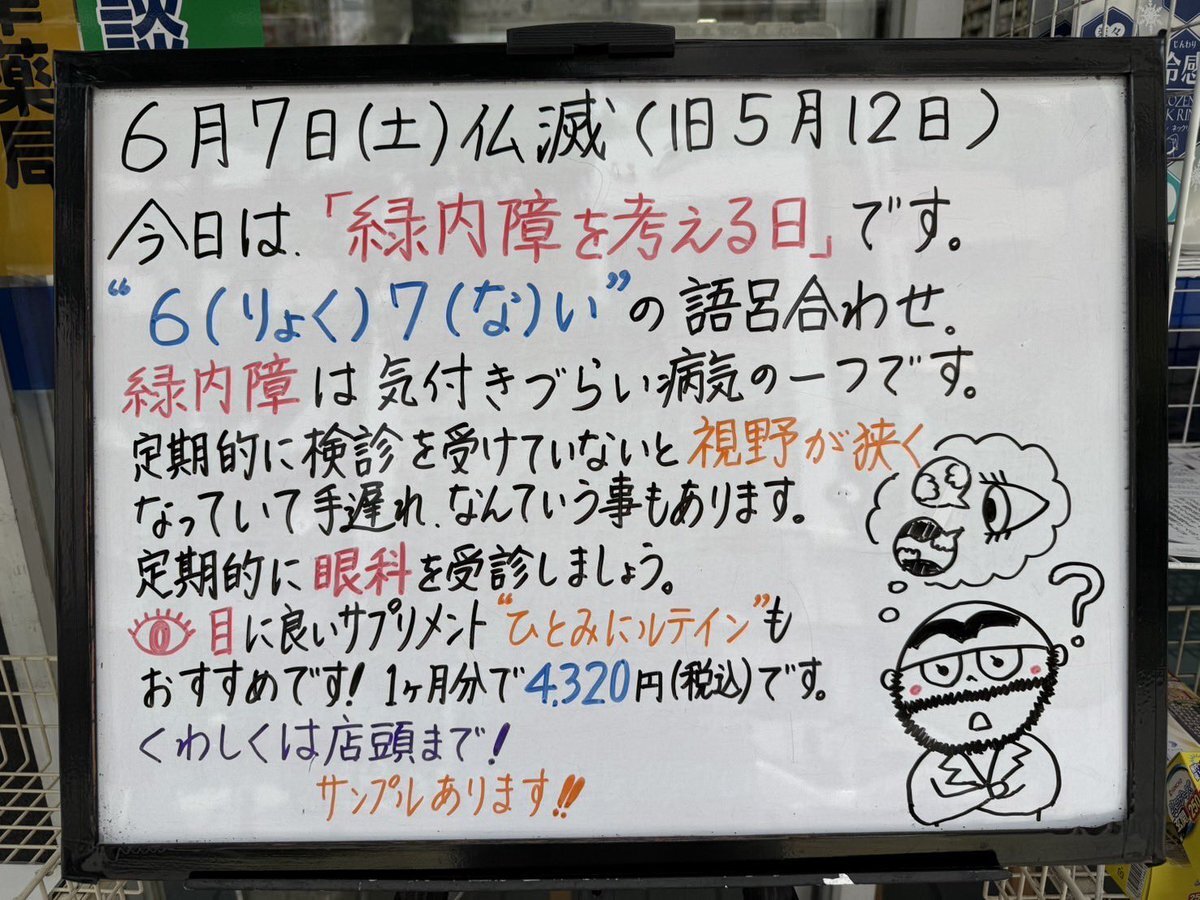 談
薬局
6月7日(土)仏滅(旧5月12日)
今日は、「緑内障を考える日」です。
“6(りょく)7(な)い”の語呂合わせ。
緑内障は気付きづらい病気の一つです。
定期的に検診を受けていないと視野が狭く
なっていて手遅れ、なんていう事もあります。
定期的に眼科を受診しましょう。
目に良いサプリメント“ひとみにルテイン”も
おすすめです!1ヶ月分で4,320円(税込)です。
くわしくは店頭まで!
サンプルあります!!
?
じんわり
冷感